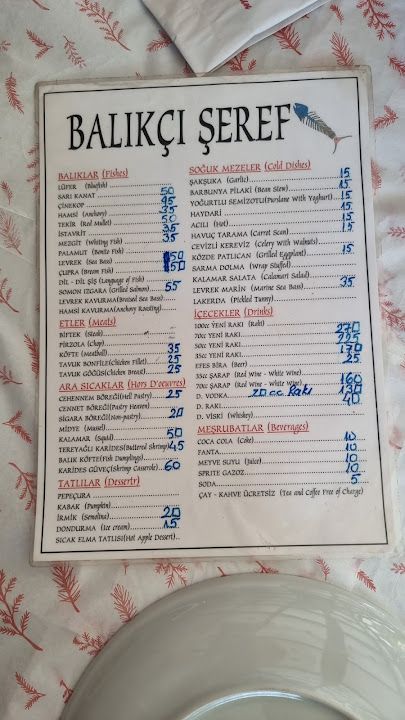 BALIKÇI ŞEREF
BALIKLAR (Fishes)
LÜFER (Bluefish)
SARI KANAT 50
ÇİNEKOP 95
HAMSİ (Anchovy) 35
TEKİR (Red Mullet) 50
İSTAVRİT 35
MEZGİT (Whiting Fish) 35
PALAMUT (Bonito Fish)
LEVREK (Sea Bass) 50
ÇUPRA (Bream Fish) 50
DİL - DİL ŞİŞ (Language of Fish)
SOMON IZGARA (Grilled Salmon) 55
LEVREK KAVURMA (Braised Sea Bass)
HAMSİ KAVURMA (Anchovy Roasting)
ETLER (Meats)
BİFTEK (Steak)
PİRZOLA (Chop)
KÖFTE (Meatball) 35
TAVUK BONFİLE (Chicken Fillet) 25
TAVUK GÖĞÜS (Chicken Breast) 25
ARA SICAKLAR (Hors D'oeuvres)
CEHENNEM BÖREĞİ (Hell Pastry) 25
CENNET BÖREĞİ (Pastry Heaven)
SİGARA BÖREĞİ (Non-pastry) 20
MİDYE (Mussel)
KALAMAR (Squid) 50
TEREYAĞLI KARİDES (Buttered Shrimp) 45
BALIK KÖFTE (Fish Dumplings)
KARİDES GÜVEÇ (Shrimp Casserole) 60
TATLILAR (Dessertr)
PEPEÇURA
KABAK (Pumpkin)
İRMİK (Semolina) 20
DONDURMA (Ice cream) 15
SICAK ELMA TATLISI (Hot Apple Dessert)
SOĞUK MEZELER (Cold Dishes)
ŞAKŞUKA (Garlic) 15
BARBUNYA PİLAKİ (Bean Stew) 15
YOĞURTLU SEMİZOTU (Purslane With Yoghurt) 15
HAYDARİ 15
ACILI (Hot) 15
HAVUÇ TARAMA (Carrot Scan) 15
CEVİZLİ KEREVİZ (Celery With Walnuts)
KÖZDE PATLICAN (Grilled Eggplant) 15
SARMA DOLMA (Wrap Stuffed)
KALAMAR SALATA (Calamari Salad)
LEVREK MARİN (Marine Sea Bass) 35
LAKERDA (Pickled Tunny)
İÇECEKLER (Drinks)
100cc YENİ RAKI (Raki) 270
70cc YENİ RAKI 225
35cc YENİ RAKI 130
EFES BİRA (Beer) 25
35cc ŞARAP (Red Wine - White wine)
70cc ŞARAP (Red Wine - White wine) 160
D. VODKA 20 cc Rakı 130
D. RAKI 40
D. VİSKİ (Whiskey)
MEŞRUBATLAR (Beverages)
COCA COLA (Coke) 10
FANTA 10
MEYVE SUYU (Juice) 10
SPRITE GAZOZ 10
SODA 5
ÇAY - KAHVE ÜCRETSİZ (Tea and Coffee Free of Charge)